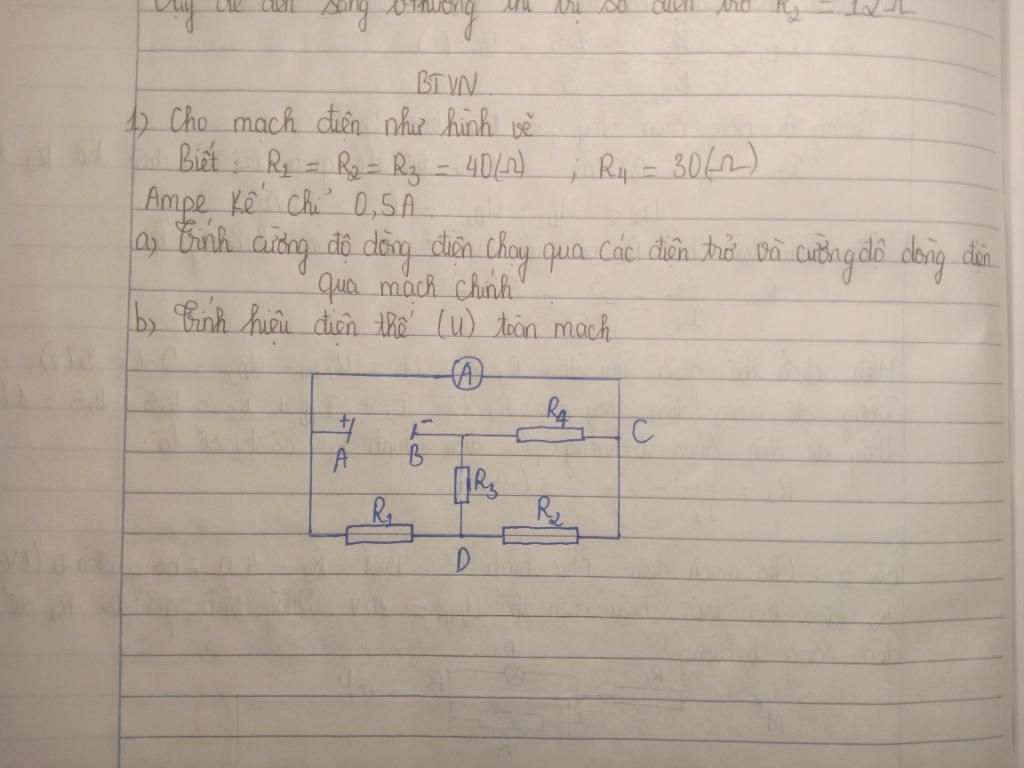 Vậy để đèn sáng bthường thì trị số điện trở R₂ = 12Ω
BTVN
1) Cho mạch điện như hình vẽ
Biết: R₁ = R₂ = R₃ = 40(Ω) ; R₄ = 30(Ω)
Ampe kế chỉ 0,5A
a) Tính cường độ dòng điện chạy qua các điện trở và cường độ dòng điện
qua mạch chính
b) Tính hiệu điện thế (U) toàn mạch
A
+ - R₄ C
A B
R₃
R₁ R₂
D